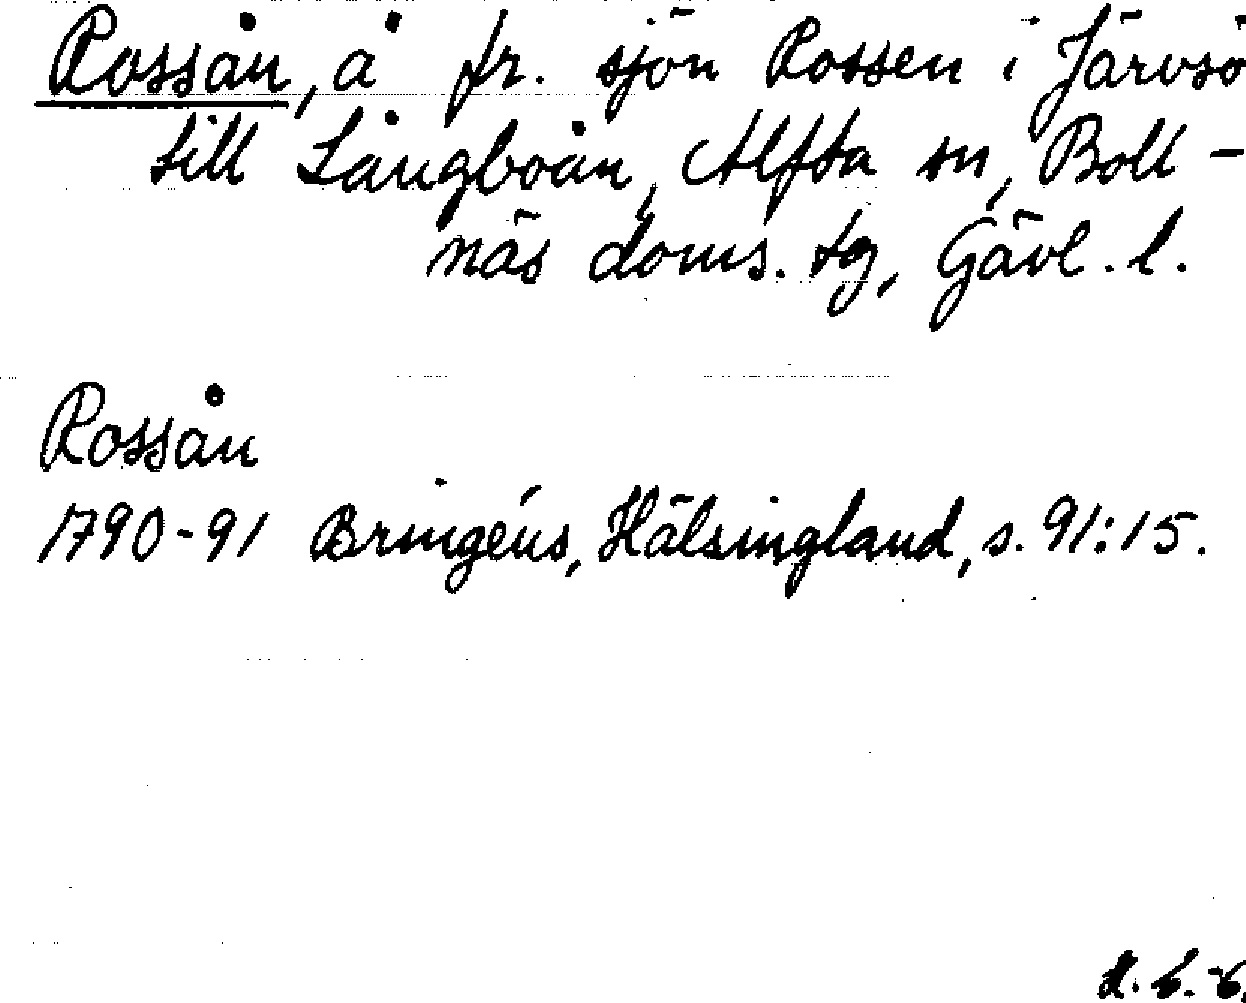 Rossån, å fr. sjön Rossen i Järvsö
till Långboån, Alfta sn, Boll-
näs doms. tg, Gävl. l.
Rossån
1790-91 Bringéus, Hälsingland, s. 91:15.